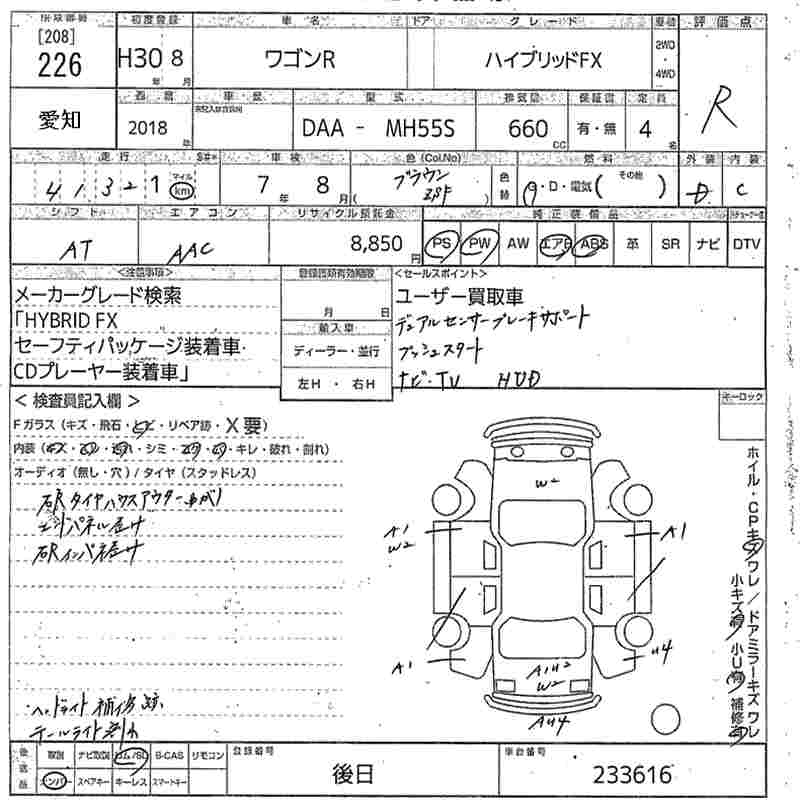 [208]
初度登録 車名 ドア グレード 車歴 評価点
226 H30 8 ワゴンR ハイブリッドFX 2WD・4WD R
年 月
型式 排気量 定員
愛知 2018 年 DAA - MH55S 660 CC 有・無 4 名
走行 車検 色(Col.No) 燃料 外装 内装
41321 マイル km 7年 8月 ブラウン ZPF 色替 G・D・電気( その他 ) D C
シフト エアコン リサイクル預託金 純正装備品
AT AAC 8,850 円 PS PW AW エアB ABS 革 SR ナビ DTV
<注意事項> <セールスポイント>
メーカーグレード検索
「HYBRID FX
セーフティパッケージ装着車
CDプレーヤー装着車」
月 日
輸入車
ディーラー・並行
左H・右H
ユーザー買取車
デュアルセンサーブレーキサポート
プッシュスタート
ナビ・TV HUD
キーロック
<検査員記入欄>
Fガラス(キズ・飛石・ヒビ・リペア跡・X要)
内装(キズ・・汚れ・シミ・・・キレ・破れ・割れ)
オーディオ(無し・穴)/タイヤ(スタッドレス)
右Rタイヤハウスアウター曲がり
エンドパネル
右Rインパネ
ヘッドライト補修跡
テールライト割れ
W2
A1
W2
A1
A1
U4
A1U2
W2
AU4
ホイル・CPキズワレ/ドアミラーキズワレ
小キズ有/小U有/補修有
後返品 取説 ナビ取説 S-CAS リモコン 登録番号 車台番号
ナンバー スペアキー キーレス スマートキー 後日 233616